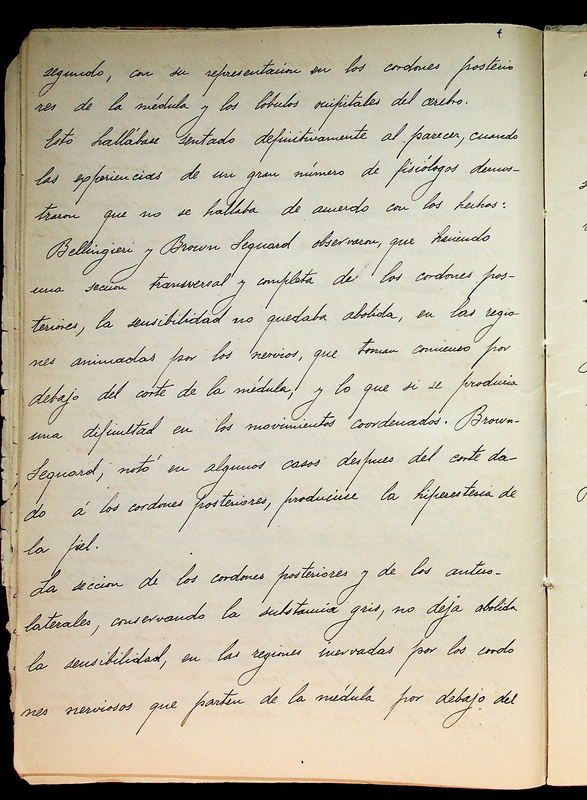 4
segundo, con su representacion en los cordones posterio
res de la médula y los lóbulos ocipitales del cerebro.
Esto hallábase sentado definitivamente al parecer, cuando
las experiencias de un gran número de fisiólogos demos-
traron que no se hallaba de acuerdo con los hechos.
Bellingieri y Brown Sequard observaron, que haciendo
una seccion transversal y completa de los cordones pos-
teriores, la sensibilidad no quedaba abolida, en las regio
nes animadas por los nervios, que toman comienzo por
debajo del corte de la médula, y lo que si se producia
una dificultad en los movimientos coordenados. Brown-
Sequard, notó en algunos casos despues del corte da-
do á los cordones posteriores, producirse la hiperestesia de
la piel.
La seccion de los cordones posteriores y de los antero-
laterales, conservando la substancia gris, no deja abolida
la sensibilidad, en las regiones inervadas por los cordo
nes nerviosos que parten de la médula por debajo del